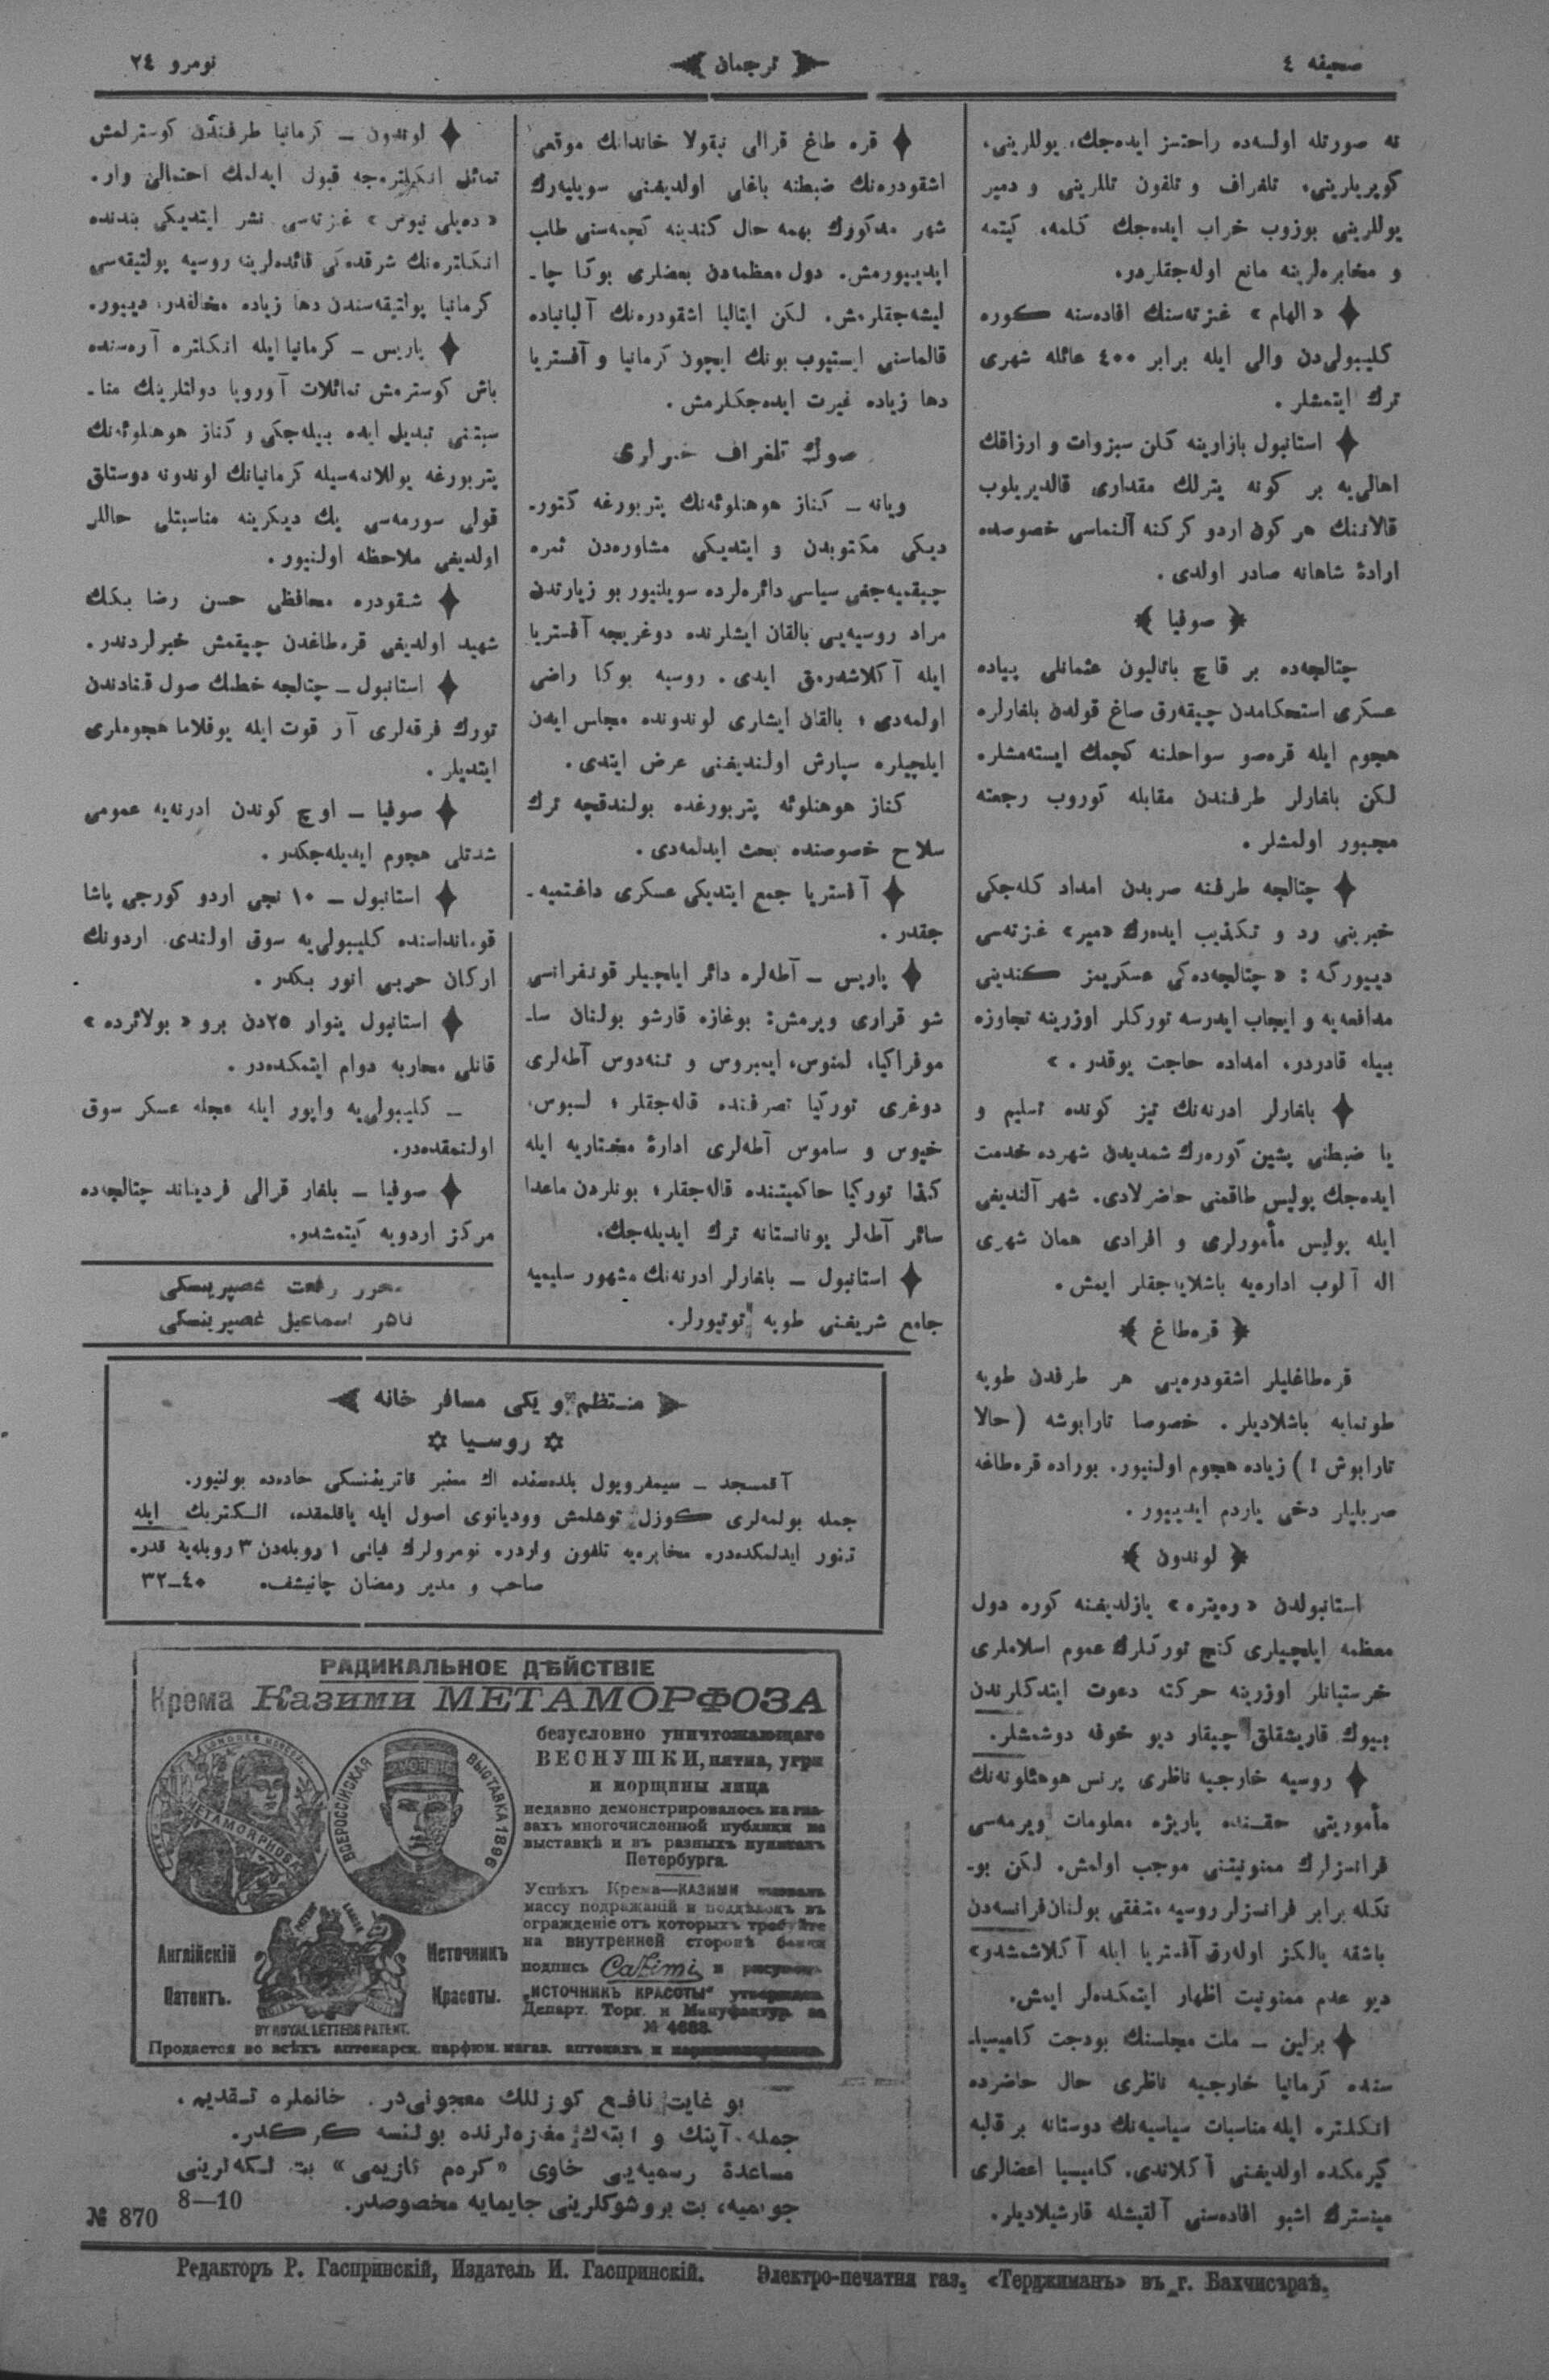 صحیفه ٤
ترجمان
نومرو ٢٤
نه صورتله اولسه‌ده راحتسز ایده‌جك، یوللرینی،
كوپریلرینی، تلغراف و تلفون تللرینی و دمیر
یوللرینی بوزوب خراب ایده‌جك كلمه، كیتمه
و مخابره‌لرینه مانع اوله‌جقلردر.
«الهام» غزته‌سنك افاده‌سنه كوره
كلیبولی‌دن والی ایله برابر ٤٠٠ عائله شهری
ترك ایتمشلر.
استانبول بازارینه كلن سبزوات و ارزاقك
اهالی‌یه بر كونه یترلك مقداری قالدیریلوب
قالاننك هر كون اردو كركنه آلنماسی خصوصده
ارادهٔ شاهانه صادر اولدی.
صوفیا
چتالجه‌ده بر قاچ باتالیون عثمانلی پیاده
عسكری استحكامدن چیقه‌رق صاغ قولدن بلغارلره
هجوم ایله قره‌صو سواحلنه كچمك ایسته‌مشلر.
لكن بلغارلر طرفندن مقابله كوروب رجعته
مجبور اولمشلر.
چتالجه طرفنه صربدن امداد كله‌جكی
خبرینی رد و تكذیب ایده‌رك «میر» غزته‌سی
دییوركه: «چتالجه‌ده‌كی عسكریمز كندینی
مدافعه‌یه و ایجاب ایدرسه توركلر اوزرینه تجاوزه
بیله قادردر، امداده حاجت یوقدر.»
بلغارلر ادرنه‌نك تیز كونده تسلیم و
یا ضبطنی پشین كوره‌رك شمدیدن شهرده خدمت
ایده‌جك پولیس طاقمنی حاضرلادی. شهر آلندیغی
ایله پولیس مأمورلری و افرادی همان شهری
اله آلوب اداره‌یه باشلایه‌جقلر ایمش.
قره‌طاغ
قره‌طاغلیلر اشقودره‌یی هر طرفدن طوپه
طوتمایه باشلادیلر. خصوصا تارابوشه (حالا
تارابوش!) زیاده هجوم اولنیور. بوراده قره‌طاغه
صربلیلر دخی یاردم ایدییور.
لوندون
استانبولدن «ره‌یتره» یازلدیغنه كوره دول
معظمه ایلچیلری كنج توركلرك عموم اسلاملری
خرستیانلر اوزرینه حركته دعوت ایتدكلرندن
بیوك قاریشقلق چیقار دیو خوفه دوشمشلر.
روسیه خارجیه ناظری پرنس هوهنلونه‌نك
مأموریتی حقنده پاریژه معلومات ویرمه‌سی
فرانسزلرك ممنونیتنی موجب اولمش. لكن بو-
نكله برابر فرانسزلر روسیه متفقی بولنان فرانسه‌دن
باشقه یالكز اوله‌رق آفستریا ایله آكلاشمشدر»
دیو عدم ممنونیت اظهار ایتمكده‌لر ایمش.
برلین — ملت مجلسنك بودجت كامیسیا-
سنده كرمانیا خارجیه ناظری حال حاضرده
انكلتره ایله مناسبات سیاسیه‌نك دوستانه بر قالبه
كیرمكده اولدیغنی آكلاندی. كامیسیا اعضالری
مینسترك اشبو افاده‌سنی آلقیشله قارشیلادیلر.
قره طاغ قرالی نیقولا خانداننك موقعی
اشقودره‌نك ضبطنه باغلی اولدیغنی سویلیه‌رك
شهر مذكورك بهمه حال كندینه كچمه‌سنی طلب
ایدییورمش. دول معظمه‌دن بعضلری بوكا چا-
لیشه‌جقلرمش. لكن ایتالیا اشقودره‌نك آلبانیاده
قالماسنی ایستیوب بونك ایچون كرمانیا و آفستریا
دها زیاده غیرت ایده‌جكلرمش.
صوك تلغراف خبرلری
ویانه — كناز هوهنلوئه‌نك پتربورغه كتور-
دیكی مكتوبدن و ایتدیكی مشاوره‌دن ثمره
چیقمیه‌جغی سیاسی دائره‌لرده سویلنیور بو زیارتدن
مراد روسیه‌یی بالقان ایشلرنده دوغریجه آفستریا
ایله آكلاشدرمق ایدی. روسیه بوكا راضی
اولمه‌دی؛ بالقان ایشلری لوندونده مجلس ایدن
ایلچیلره سپارش اولندیغنی عرض ایتدی.
كناز هوهنلوئه پتربورغده بولندقچه ترك
سلاح خصوصنده بحث ایدلمه‌دی.
آفستریا جمع ایتدیكی عسكری داغتمیه-
جقدر.
پاریس — آطه‌لره دائر ایلچیلر قونفرانسی
شو قراری ویرمش: بوغازه قارشو بولنان سا-
موفراكیا، لمنوس، ایمبروس و تنه‌دوس آطه‌لری
دوغری توركیا تصرفنده قاله‌جقلر؛ لسبوس،
خیوس و ساموس آطه‌لری ادارهٔ مختاریه ایله
كذا توركیا حاكمیتنده قاله‌جقلر؛ بونلردن ماعدا
سائر آطه‌لر یونانستانه ترك ایدیله‌جك.
استانبول — بلغارلر ادرنه‌نك مشهور سلیمیه
جامع شریفنی طوپه توتیورلر.
لوندون — كرمانیا طرفندن كوسترلمش
تمائل انكلتره‌جه قبول ایدلمك احتمالی وار.
«ده‌یلی نیوس» غزته‌سی نشر ایتدیكی بندنده
انكلتره‌نك شرقده‌كی فائده‌لرینه روسیه پولتیقه‌سی
كرمانیا پولتیقه‌سندن دها زیاده مخالفدر، دییور.
پاریس — كرمانیا ایله انكلتره آره‌سنده
باش كوسترمش تمائلات آوروپا دولتلرینك منا-
سبتنی تبدیل ایده بیله‌جكی و كناز هوهنلوئه‌نك
پتربورغه یوللانمه‌سیله كرمانیانك لوندونه دوستلق
قولی سورمه‌سی یك دیكرینه مناسبتلی حاللر
اولدیغی ملاحظه اولنیور.
شقودره محافظی حسن رضا بكك
شهید اولدیغی قره‌طاغدن چیقمش خبرلردندر.
استانبول — چتالجه خطنك صول قنادندن
تورك فرقه‌لری آز قوت ایله یوقلاما هجوملری
ایتدیلر.
صوفیا — اوچ كوندن ادرنه‌یه عمومی
شدتلی هجوم ایدیله‌جكدر.
استانبول — ١٠ نجی اردو كورجی پاشا
قومانداسنده كلیبولی‌یه سوق اولندی. اردونك
اركان حربی انور بكدر.
استانبول ینوار ٢٥دن برو «بولائرده»
قانلی محاربه دوام ایتمكده‌در.
— كلیبولی‌یه واپور ایله عجله عسكر سوق
اولنمقده‌در.
صوفیا — بلغار قرالی فردیناند چتالجه‌ده
مركز اردویه كیتمشدر.
محرر رفعت غصپرینسكی
ناشر اسماعیل غصپرینسكی
منتظم و یكی مسافر خانه
روسیا
آقمسجد — سیمفروپول بلده‌سنده اك معتبر قاتریننسكی جاده‌ده بولنیور.
جمله بولمه‌لری كوزل توشلمش وودیانوی اصول ایله یاقلمقده، الكتریك ایله
تنور ایدلمكده‌در. مخابره‌یه تلفون واردر. نومرولرك فیاتی ١ روبله‌دن ٣ روبله‌یه قدر.
صاحب و مدیر رمضان چانیشف. ٤٠—٣٢
РАДИКАЛЬНОЕ ДѢЙСТВІЕ
Крема Казими МЕТАМОРФОЗА
безусловно уничтожающаго
ВЕСНУШКИ, пятна, угри
и морщины лица
недавно демонстрировалось на гла-
захъ многочисленной публики на
выставкѣ и въ разныхъ пунктахъ
Петербурга.
Успѣхъ Крема—КАЗИМИ вызвалъ
массу подражаній и поддѣлокъ въ
огражденіе отъ которыхъ требуйте
на внутренней сторонѣ банки
подпись Cazimi и рисунокъ
„ИСТОЧНИКЪ КРАСОТЫ“ утвержден.
Департ. Торг. и Мануфактур. за
№ 4683.
METAMORPHOSA
ВСЕРОССІЙСКАЯ ВЫСТАВКА 1896
Англійскій
Патентъ.
Источникъ
Красоты.
BY ROYAL LETTERS PATENT.
Продается во всѣхъ аптекарск. парфюм. магаз. аптекахъ и
بو غایت نافع كوزللك معجونی‌در. خانملره تقدیم.
جمله آپتك و ابتدك مغزه‌لرنده بولنسه كركدر.
مساعدهٔ رسمیه‌یی حاوی «كره‌م قازیمی» بت لكه‌لرینی
جویمیه، بت بروشوكلرینی جایمایه مخصوصدر.
8—10
№ 870
Редакторъ Р. Гаспринскій, Издатель И. Гаспринскій. Электро-печатня газ. «Терджиманъ» въ г. Бахчисараѣ.